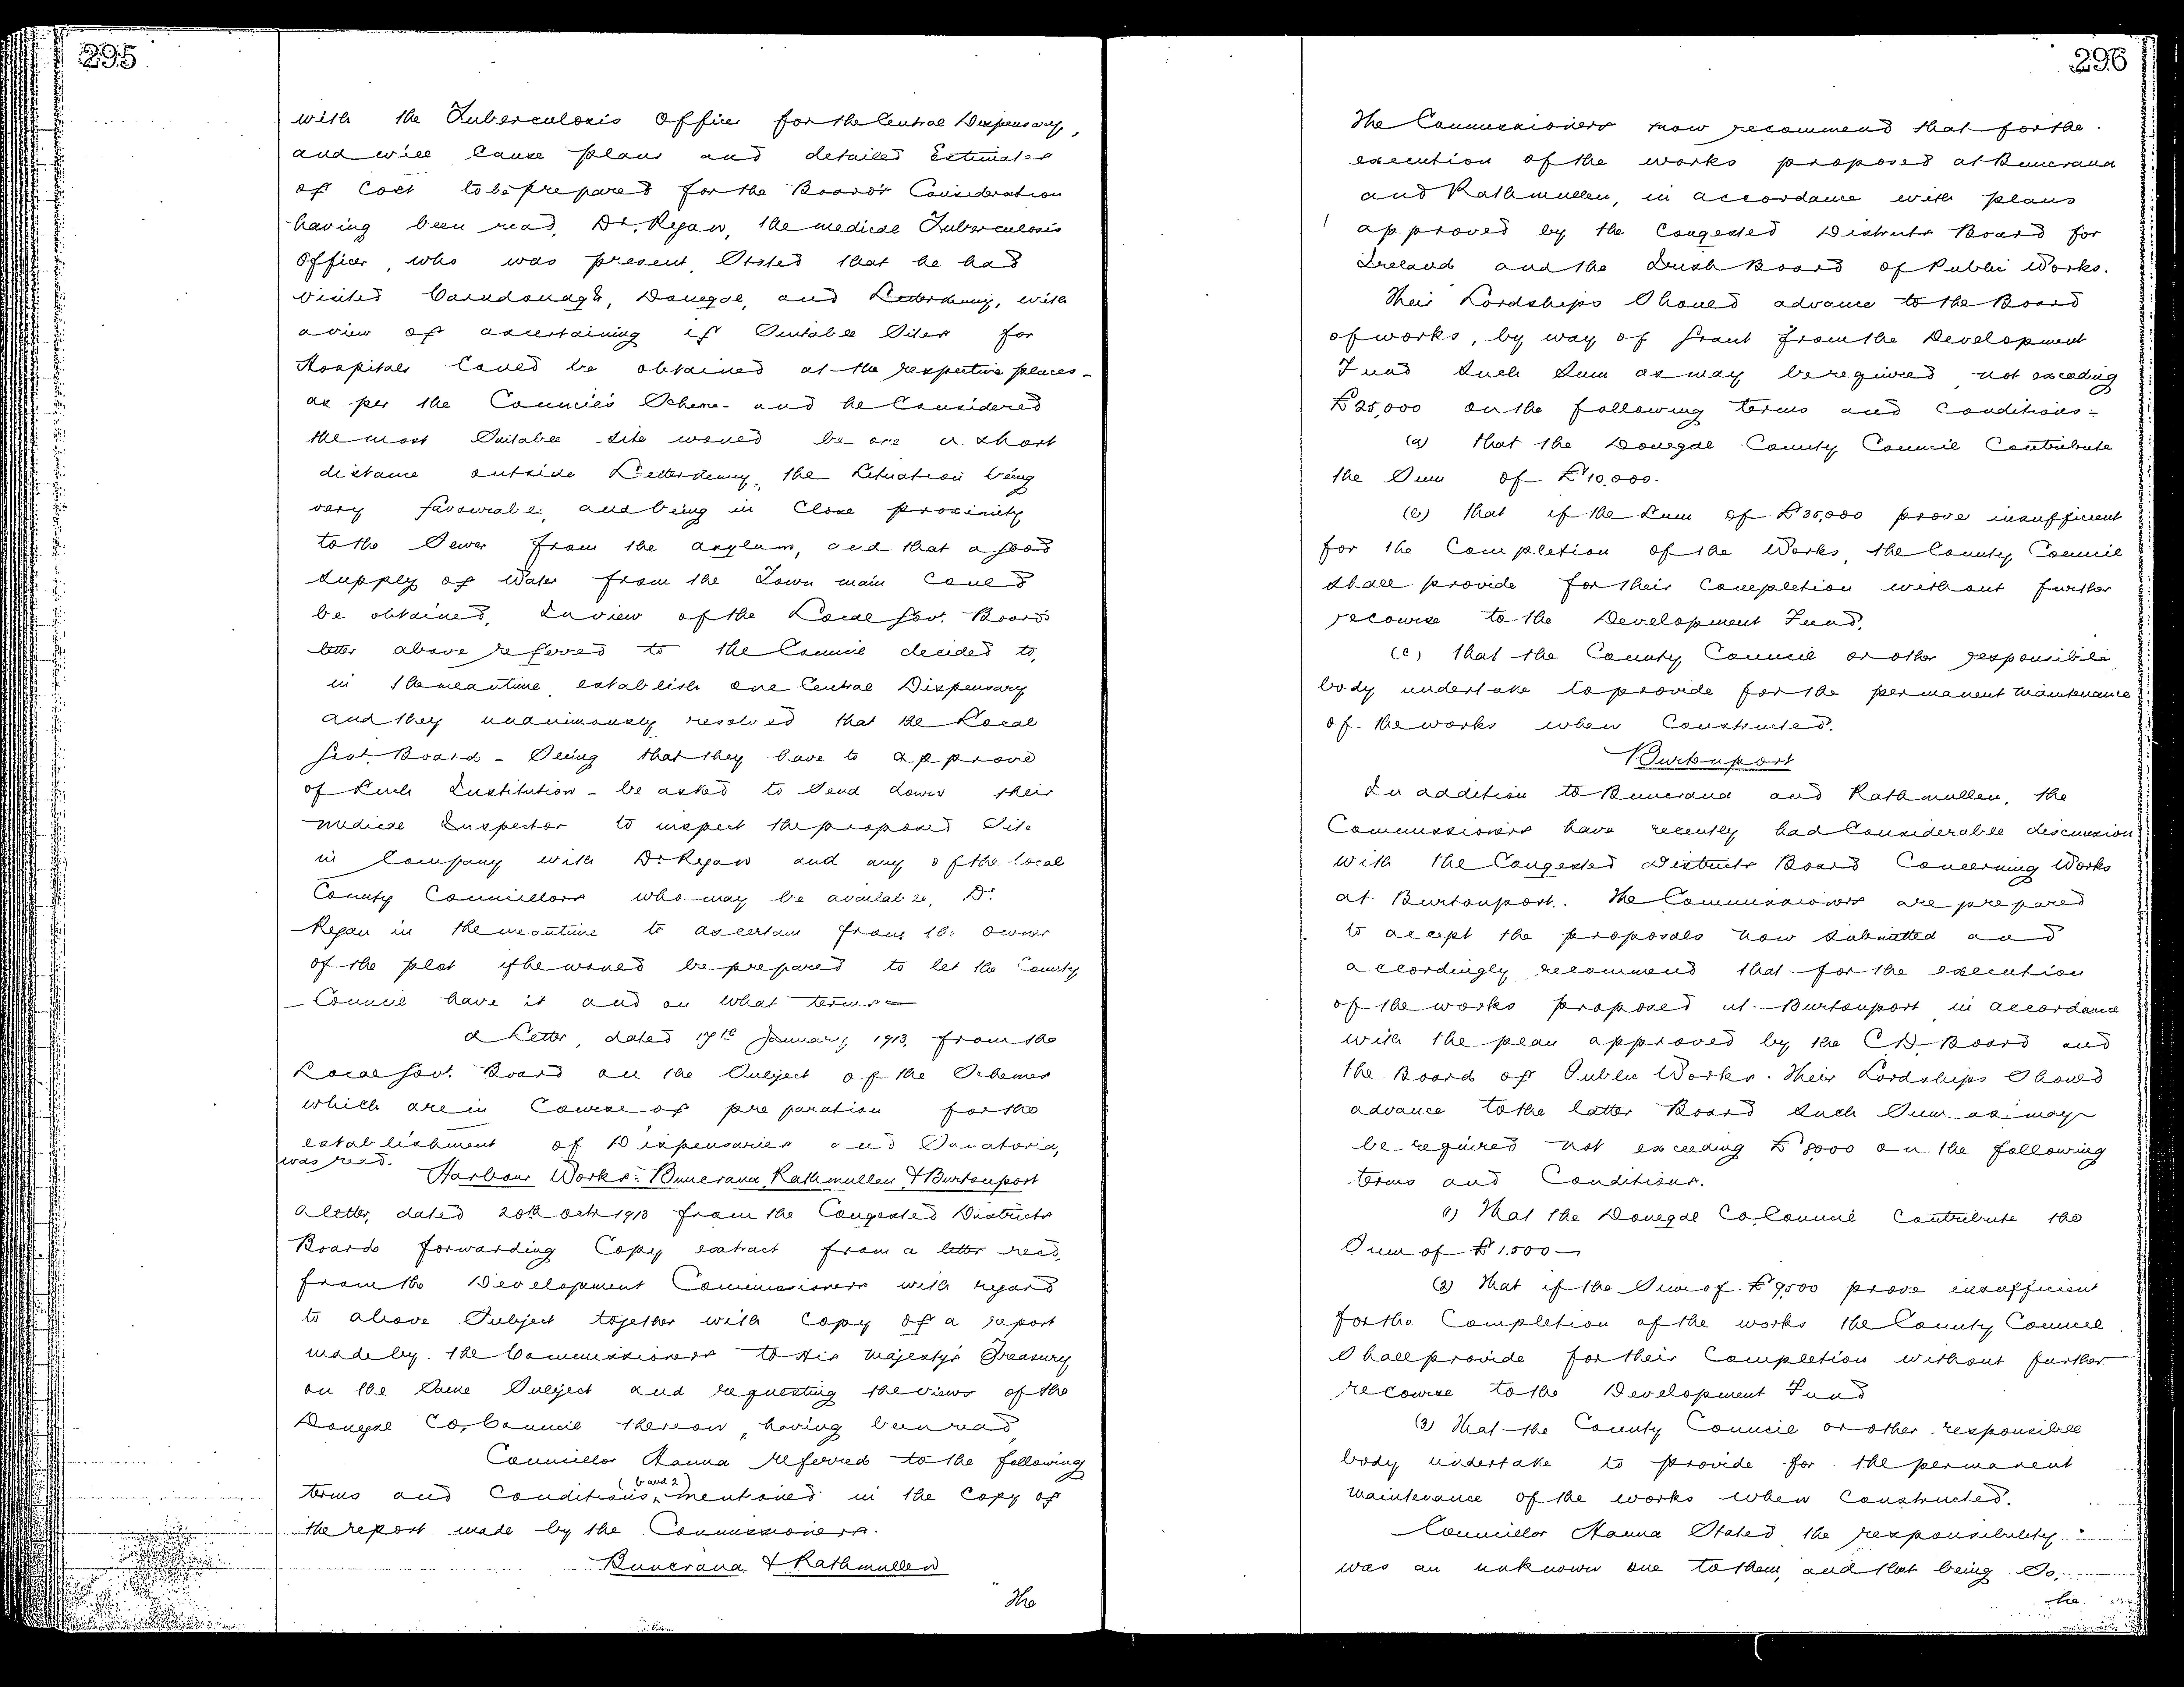 295
with the Tuberculosis Officer for the Central Dispensary,
and will cause plans and detailed Estimates
of Cost to be prepared for the Board's Consideration
having been read, Dr. Regan, the medical Tuberculosis
Officer, who was present, Stated that he had
visited Carndonagh, Donegal, and Letterkenny, with
a view of ascertaining if Suitable Sites for
Hospitals Could be obtained at the respective places -
as per the Council's Scheme - and he Considered
the most Suitable site would be one a short
distance outside Letterkenny, the Situation being
very favourable, and being in Close proximity
to the Sewer from the asylum, and that a good
supply of Water from the Town main Could
be obtained. In view of the Local Gov. Board's
letter above referred to the Council decided to,
in the meantime, establish one Central Dispensary
and they unanimously resolved that the Local
Govt. Board - Seeing that they have to approve
of such Institution - be asked to Send down their
medical Inspector to inspect the proposed Site
in Company with Dr Regan and any of the local
County Councillors who may be available, Dr.
Regan in the meantime to ascertain from the owner
of the plot if he would be prepared to let the County
Council have it and on what terms -
A Letter, dated 17th January, 1913, from the
Local Gov. Board on the Subject of the Schemes
which are in Course of preparation for the
establishment of Dispensaries and Sanatoria,
was read.
Harbour Works: Buncrana, Rathmullen & Burtonport
A letter, dated 20th Octr 1913 from the Congested Districts
Board forwarding Copy extract from a letter recd.
from the Development Commissioners with regard
to above Subject together with Copy of a report
made by the Commissioners to His Majesty's Treasury
on the Same Subject and requesting the views of the
Donegal Co. Council thereon, having been read,
Councillor Hanna referred to the following
terms and Conditions, (b and 2) mentioned in the Copy of
the report made by the Commissioners.
Buncrana & Rathmullen
"The
296
The Commissioners now recommend that for the
execution of the works proposed at Buncrana
and Rathmullen, in accordance with plans
approved by the Congested Districts Board for
Ireland and the Irish Board of Public Works.
Their Lordships Should advance to the Board
of works, by way of Grant from the Development
Fund Such Sum as may be required not exceeding
£25,000 on the following terms and Conditions -
(a) that the Donegal County Council Contribute
the Sum of £10,000.
(b) that if the Sum of £35,000 prove insufficient
for the Completion of the Works, the County Council
shall provide for their Completion without further
recourse to the Development Fund.
(c) that the County Council or other responsible
body undertake to provide for the permanent maintenance
of the works when Constructed.
Burtonport
In addition to Buncrana and Rathmullen, the
Commissioners have recently had Considerable discussion
with the Congested Districts Board Concerning Works
at Burtonport. The Commissioners are prepared
to accept the proposals now Submitted and
accordingly recommend that for the execution
of the works proposed at Burtonport in accordance
with the plan approved by the C.D. Board and
the Board of Public Works. Their Lordships Should
advance to the latter Board Such Sum as may
be required not exceeding £8,000 on the following
terms and Conditions.
(1) That the Donegal Co. Council Contribute the
Sum of £1,500 -
(2) That if the Sum of £9,500 prove insufficient
for the Completion of the works the County Council
Shall provide for their Completion without further
recourse to the Development Fund
(3) That the County Council or other responsible
body undertake to provide for the permanent
maintenance of the works when Constructed.
Councillor Hanna Stated the responsibility
was an unknown one to them, and that being So,
he